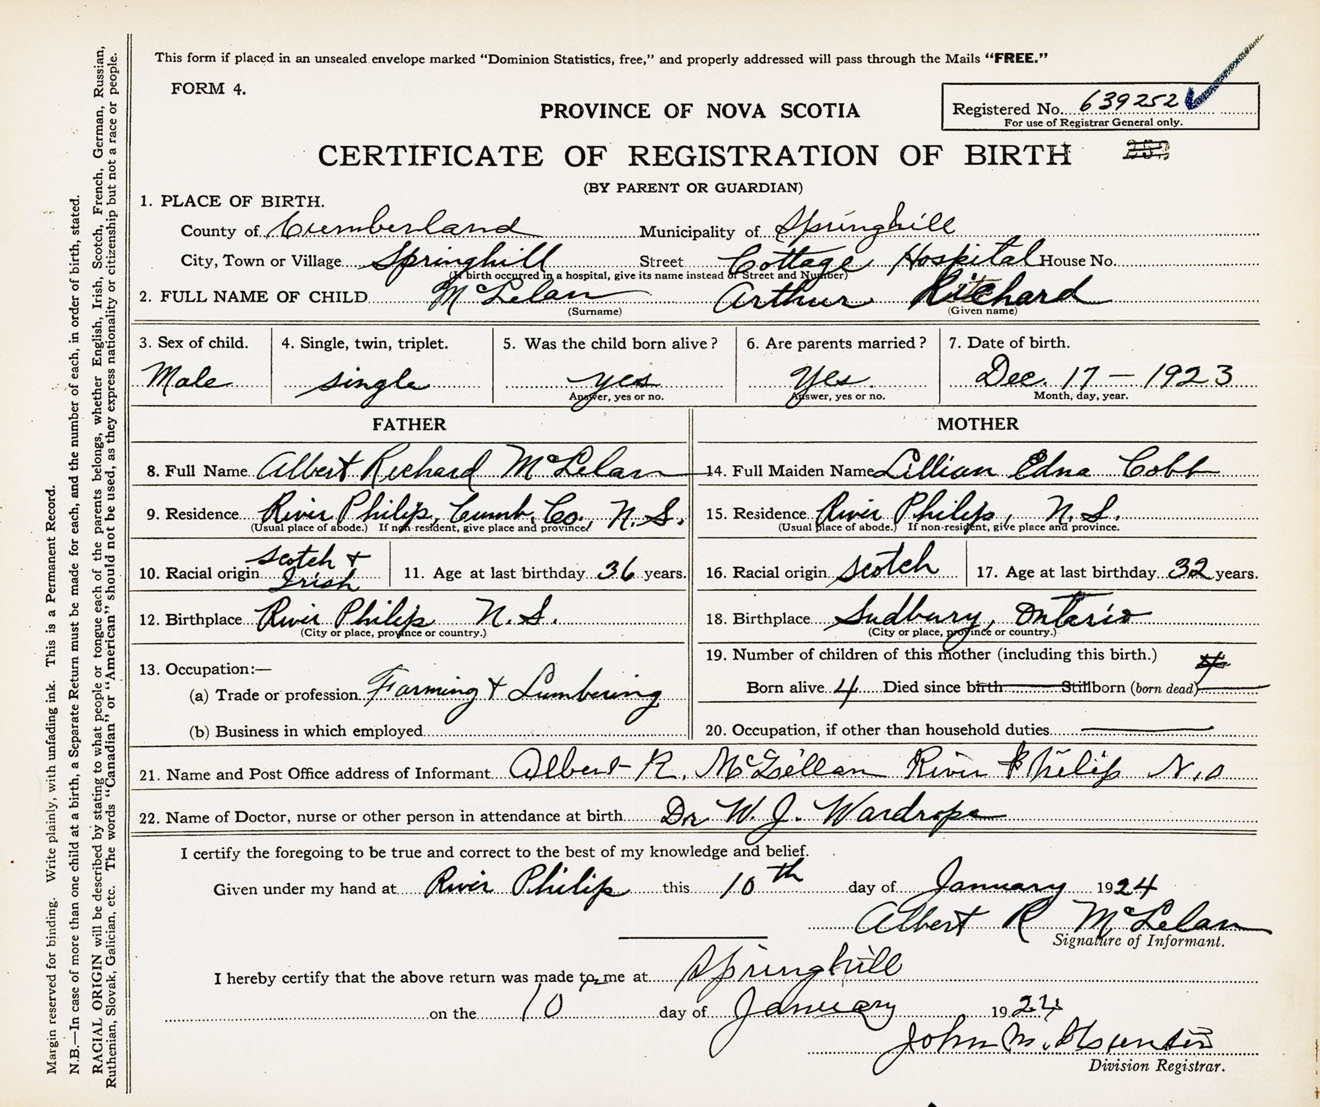 This form if placed in an unsealed envelope marked “Dominion Statistics, free,” and properly addressed will pass through the Mails “FREE.”
FORM 4.
Registered No. 639252
For use of Registrar General only.
PROVINCE OF NOVA SCOTIA
CERTIFICATE OF REGISTRATION OF BIRTH
(BY PARENT OR GUARDIAN)
1. PLACE OF BIRTH.
County of Cumberland Municipality of Springhill
City, Town or Village Springhill Street Cottage Hospital House No.
(If birth occurred in a hospital, give its name instead of Street and Number)
2. FULL NAME OF CHILD McLelan Arthur Ritchard
(Surname) (Given name)
3. Sex of child. 4. Single, twin, triplet. 5. Was the child born alive? 6. Are parents married? 7. Date of birth.
Male single yes Yes. Dec. 17 — 1923
Answer, yes or no. Answer, yes or no. Month, day, year.
FATHER MOTHER
8. Full Name Albert Richard McLelan 14. Full Maiden Name Lillian Edna Cobb
9. Residence River Philip, Cumb. Co., N.S. 15. Residence River Philip, N.S.
(Usual place of abode.) If non-resident, give place and province. (Usual place of abode.) If non-resident, give place and province.
10. Racial origin Scotch & Irish 11. Age at last birthday 36 years. 16. Racial origin Scotch 17. Age at last birthday 32 years.
12. Birthplace River Philip N.S. 18. Birthplace Sudbury, Ontario
(City or place, province or country.) (City or place, province or country.)
13. Occupation:— 19. Number of children of this mother (including this birth.)
(a) Trade or profession Farming & Lumbering Born alive 4 Died since birth Stillborn (born dead)
(b) Business in which employed 20. Occupation, if other than household duties
21. Name and Post Office address of Informant Albert R. McLellan River Philip N.S
22. Name of Doctor, nurse or other person in attendance at birth Dr W. J. Wardrope
I certify the foregoing to be true and correct to the best of my knowledge and belief.
Given under my hand at River Philip this 10th day of January 1924
Albert R McLelan
Signature of Informant.
I hereby certify that the above return was made to me at Springhill
on the 10 day of January 1924
John M.
Division Registrar.
Margin reserved for binding. Write plainly, with unfading ink. This is a Permanent Record.
N.B.—In case of more than one child at a birth, a Separate Return must be made for each, and the number of each, in order of birth, stated.
RACIAL ORIGIN will be described by stating to what people or tongue each of the parents belongs, whether English, Irish, Scotch, French, German, Russian,
Ruthenian, Slovak, Galician, etc. The words “Canadian” or “American” should not be used, as they express nationality or citizenship but not a race or people.